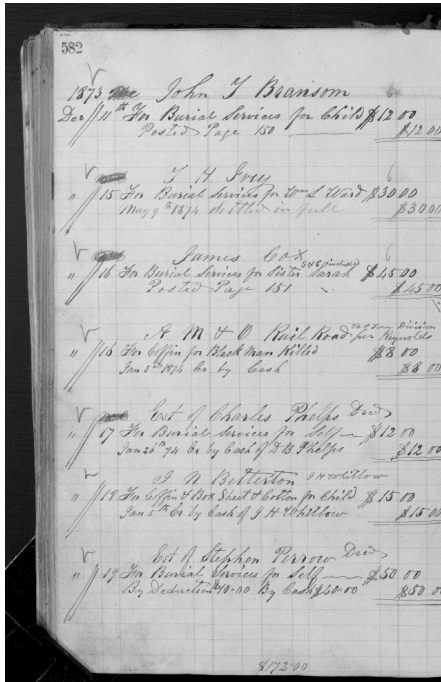 582
1873 John T Bransom
Dec 11th For Burial Services for Child $12 00
Posted Page 150 $12 00
T H Ivey
" 15 For Burial Services for Wm S Ward $30 00
May 9th 1874 Settled in full $30 00
James Cox
" 16 For Burial Services for Sister Sarah $45 00
Posted Page 151 " $45 00
A M & O Rail Road per Reynolds Division
" 16 For Coffin for Black Man Killed $8 00
Jan 3rd 1874 Cr by Cash $8 00
Est of Charles Phelps Decd
" 17 For Burial Services for Self $12 00
Jan 26th 74 Cr by Cash of D B Phelps $12 00
J N Betterton J H Whitlow
" 18 For Coffin & Box Sheet & Cotton for Child $15 00
Jan 5th Cr by Cash of J H Whitlow $15 00
Est of Stephen Perrow Decd
" 19 For Burial Services for Self $50 00
By Deduction $10.00 By Cash $40.00 $50 0
$172.00